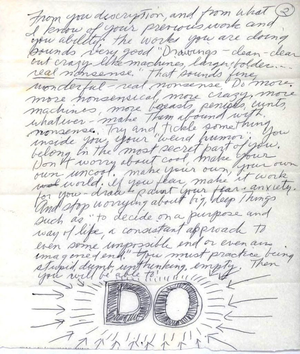 From your description, and from what ②
I know of your previous work and
your ability; the work you are doing
sounds very good "Drawing – clean – clear
but crazy like machines, larger bolder...
real nonsense." That sounds fine,
wonderful – real nonsense. Do more.
more nonsensical more crazy more
machines, more breasts, penises, cunts,
whatever – make them abound with
nonsense. Try and tickle something
inside you, your "weird humor." You
belong in the most secret part of you.
Don't worry about cool, make your
own uncool. make your own, your own
world. If you fear, make it work
for you – draw & paint your fear & anxiety.
And stop worrying about big, deep things
such as "to decide on a purpose and
way of life, a consistant approach to
even some impossible end or even an
imagined end." You must practice being
stupid, dumb, unthinking, empty. Then
you will be able to
DO